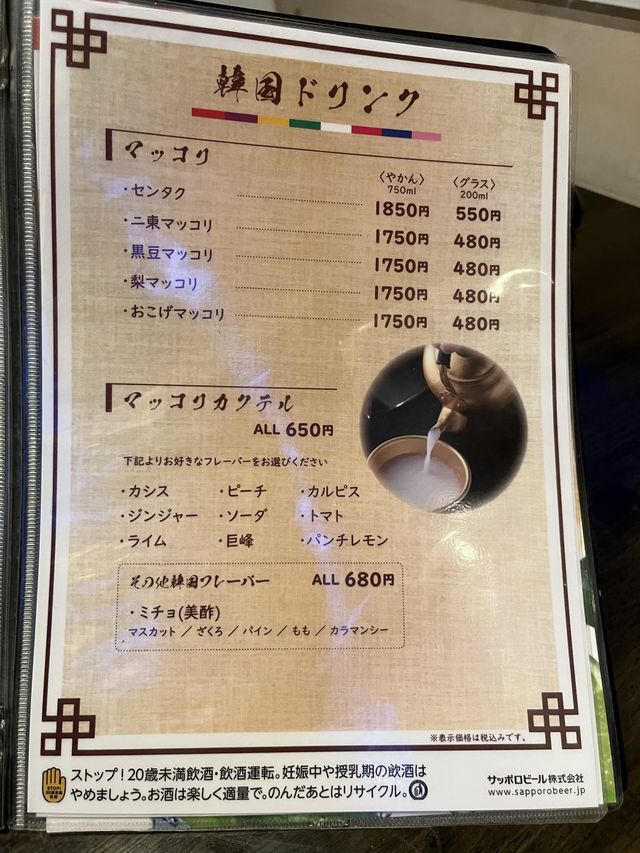 韓国ドリンク
マッコリ
〈やかん〉 〈グラス〉
750ml 200ml
・センタク 1850円 550円
・二東マッコリ 1750円 480円
・黒豆マッコリ 1750円 480円
・梨マッコリ 1750円 480円
・おこげマッコリ 1750円 480円
マッコリカクテル
ALL 650円
下記よりお好きなフレーバーをお選びください
・カシス ・ピーチ ・カルピス
・ジンジャー ・ソーダ ・トマト
・ライム ・巨峰 ・パンチレモン
その他韓国フレーバー ALL 680円
・ミチョ(美酢)
マスカット／ざくろ／パイン／もも／カラマンシー
※表示価格は税込みです。
ストップ！20歳未満飲酒・飲酒運転。妊娠中や授乳期の飲酒は
やめましょう。お酒は楽しく適量で。のんだあとはリサイクル。
サッポロビール株式会社
www.sapporobeer.jp